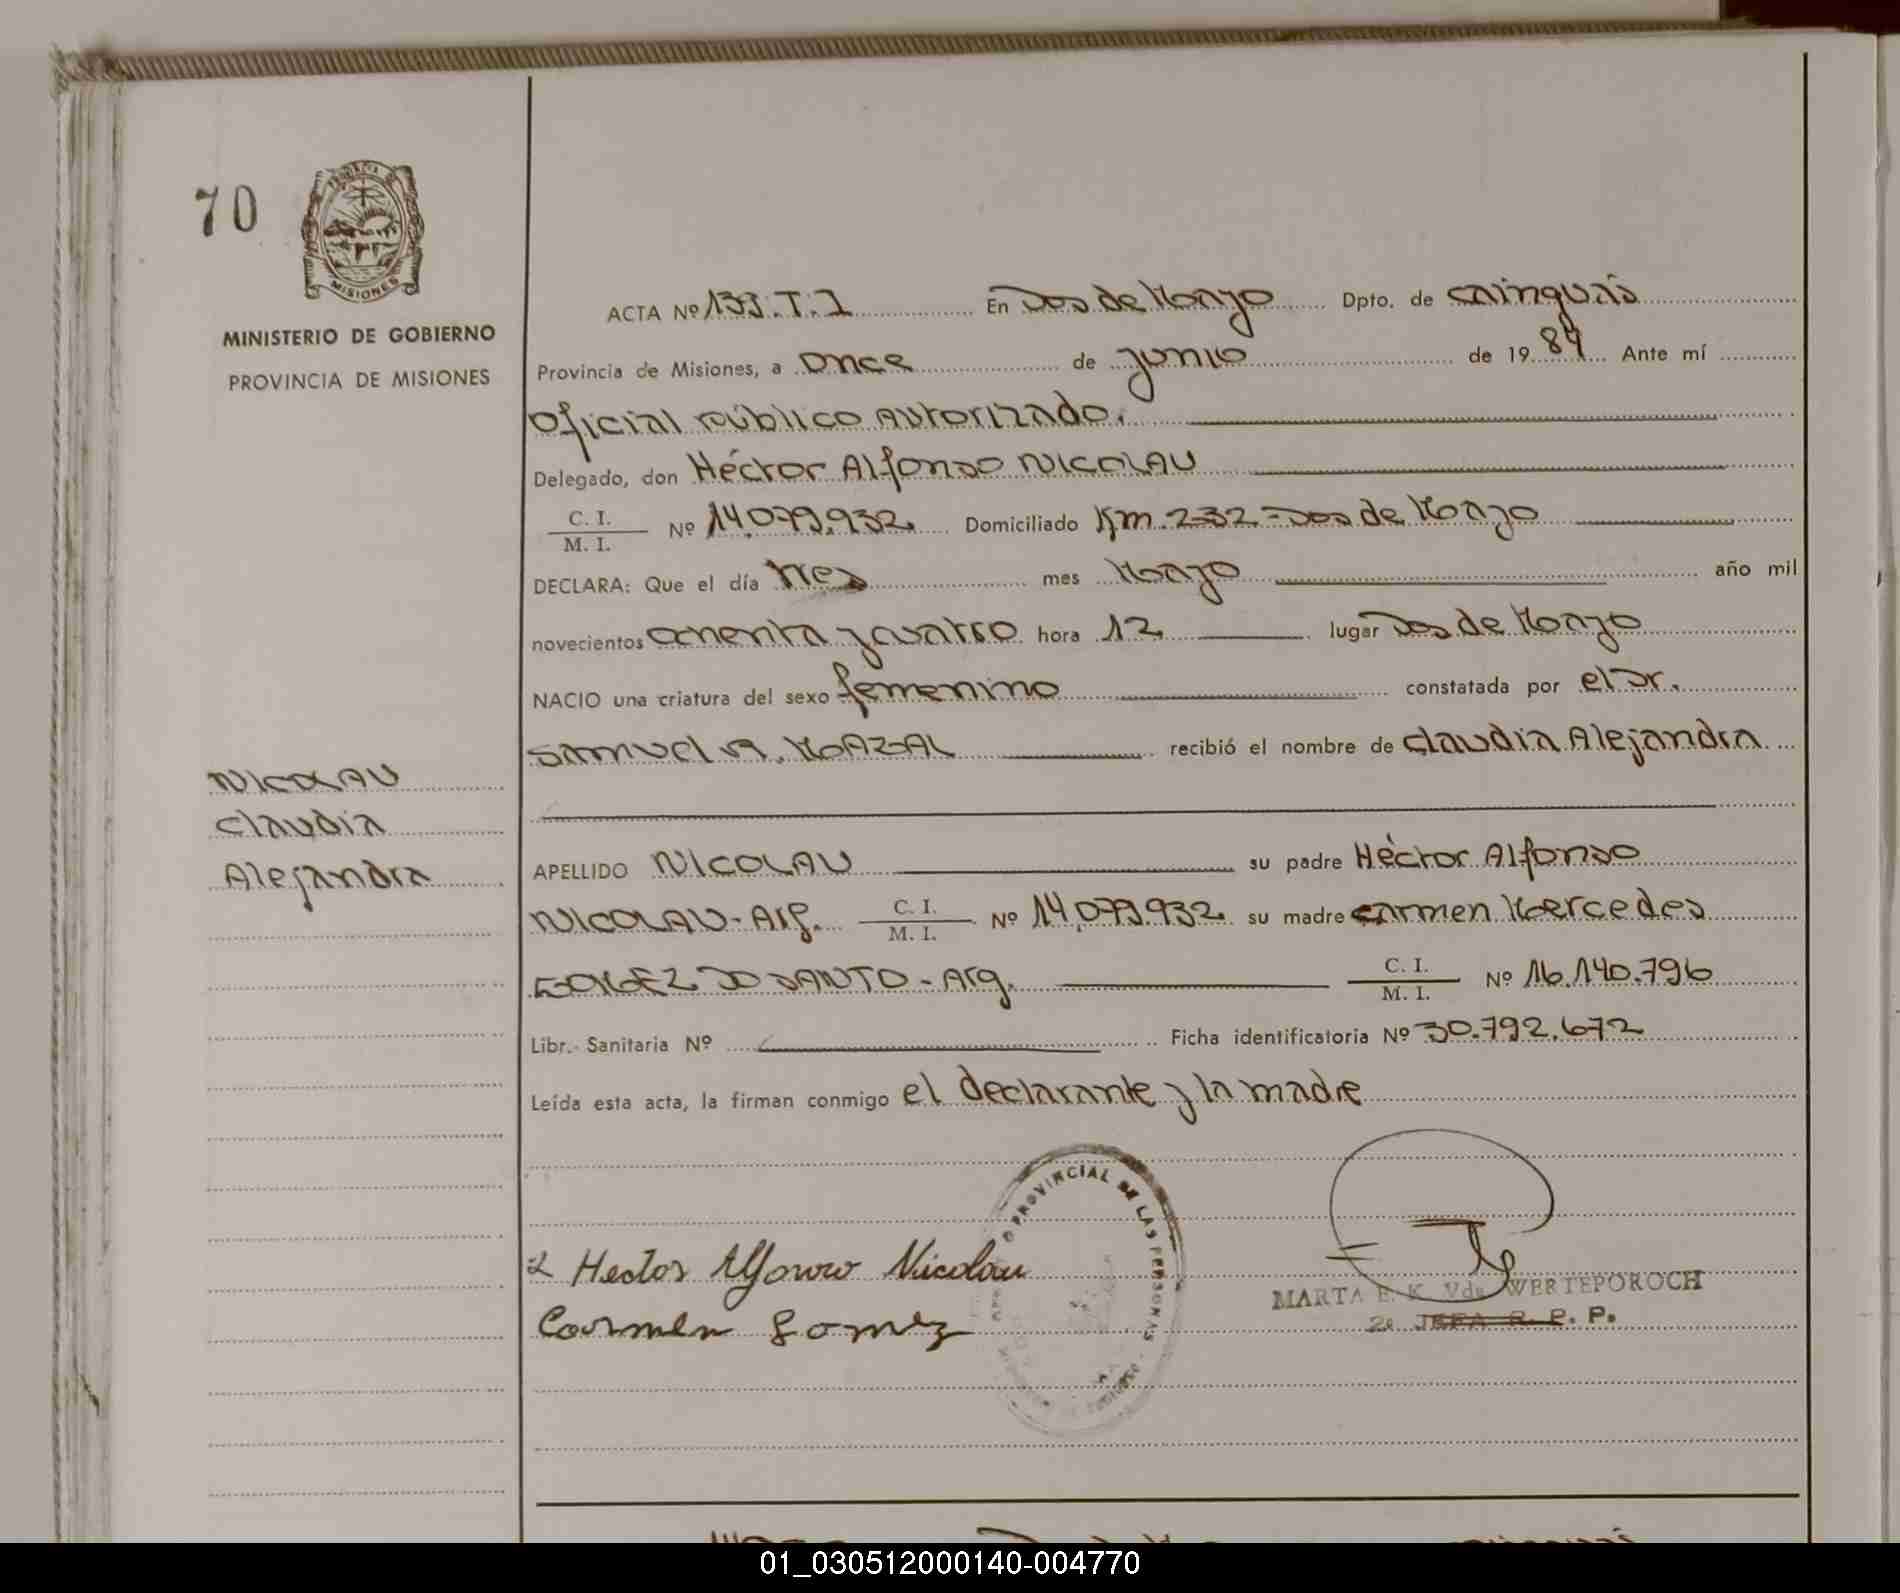 70
PROVINCIA DE
MISIONES
MINISTERIO DE GOBIERNO
PROVINCIA DE MISIONES
NICOLAU
Claudia
Alejandra
ACTA Nº 139.T.I En Dos de Mayo Dpto. de Cainguás
Provincia de Misiones, a Once de junio de 1984 Ante mí
Oficial Público Autorizado.
Delegado, don Héctor Alfonso NICOLAU
C. I.
M. I. Nº 14.079.932 Domiciliado Km. 232 - Dos de Mayo
DECLARA: Que el día tres mes Mayo año mil
novecientos ochenta y cuatro hora 12 lugar Dos de Mayo
NACIO una criatura del sexo femenino constatada por el Dr.
Samuel MAZAL recibió el nombre de Claudia Alejandra
APELLIDO NICOLAU su padre Héctor Alfonso
NICOLAU - Arg. C. I.
M. I. Nº 14.079.932 su madre Carmen Mercedes
GOMEZ DO SANTO - Arg. C. I.
M. I. Nº 16.140.796
Libr. Sanitaria Nº Ficha identificatoria Nº 30.792.672
Leída esta acta, la firman conmigo el declarante y la madre
Hector Alfonso Nicolau
Carmen Gomez
PROVINCIAL DE LAS PERSONAS
MARTA E. K. Vda WERTEPOROCH
2e JEFA R. P. P.
01_030512000140-004770